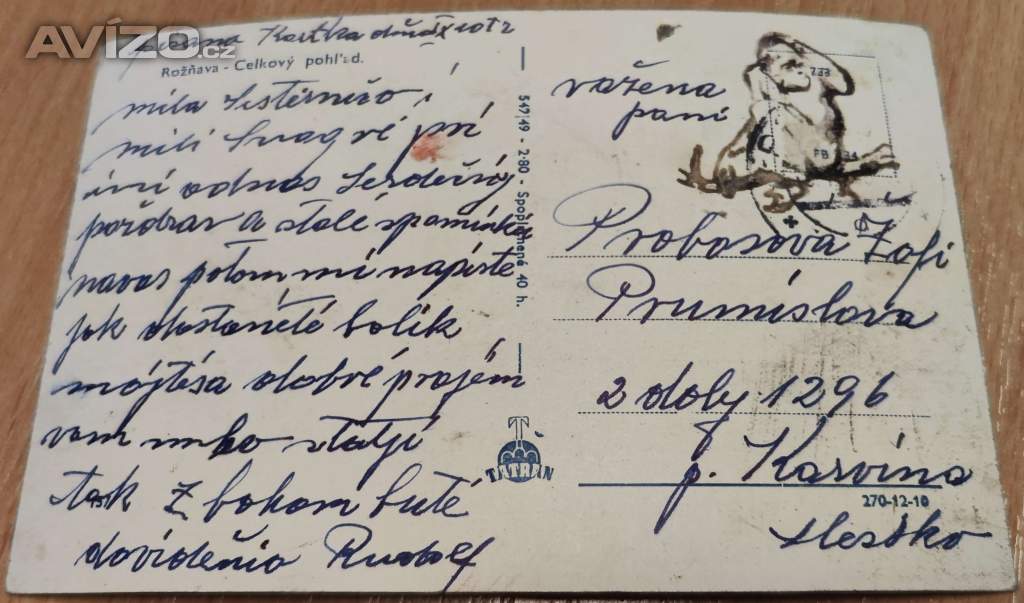 AVÍZO.cz
Kostka dňa
Rožňava - Celkový pohľad.
milá Sesterničo i
mili Svagre pri
odnas Serdečňy
pozdrav a stalé spominka
navas potom mi napiste
jak dostaneté bolik
majtesa dobre prajem
vam
tak Z bohom buté
dovideňia Rudolf
547/49 - 2-80 - Spoplatnené 40 h.
TATRAN
važena
pani
Probosova Zofi
Prumislova
2 doby 1296
p. Karvina
Slesko
270-12-10